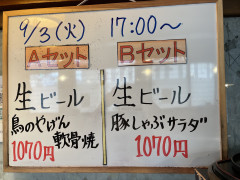 9/3(火) 17:00～
Aセット
生ビール
鳥のやげん
軟骨焼
1070円
Bセット
生ビール
豚しゃぶサラダ
1070円